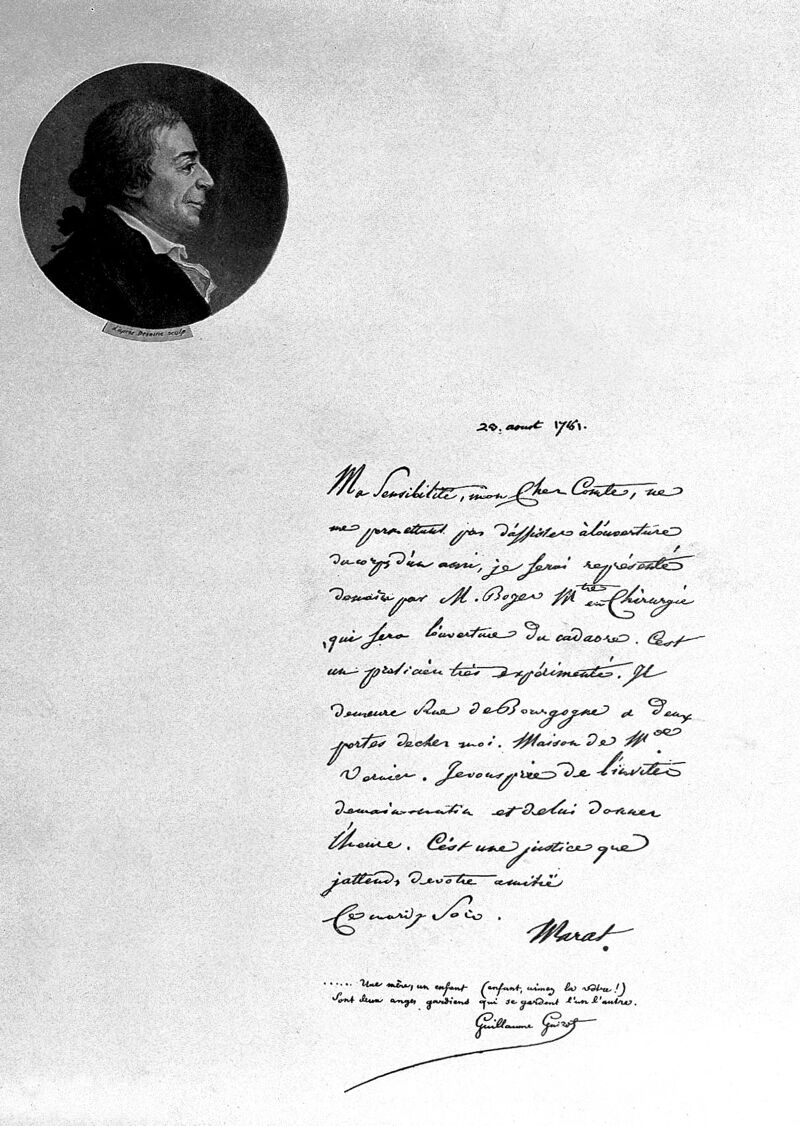 d'après Deseine sculp
28. aoust 1781.
Ma Sensibilité, mon Cher Comte, ne
me permettant pas d'assister à l'ouverture
du corps d'un ami, je serai représenté
demain par M. Boyer Mtre en Chirurgie
qui fera l'ouverture du cadavre. C'est
un praticien très expérimenté. Il
demeure Rue de Bourgogne a deux
portes de chez moi. Maison de Mde
Vernier. Je vous prie de l'inviter
demain matin et de lui donner
l'heure. C'est une justice que
j'attends de votre amitié
Ce mardy Soir.
Marat.
...... Une mère, un enfant (enfant, aimez la vôtre!)
Sont deux anges gardiens qui se gardent l'un l'autre.
Guillaume Guizot